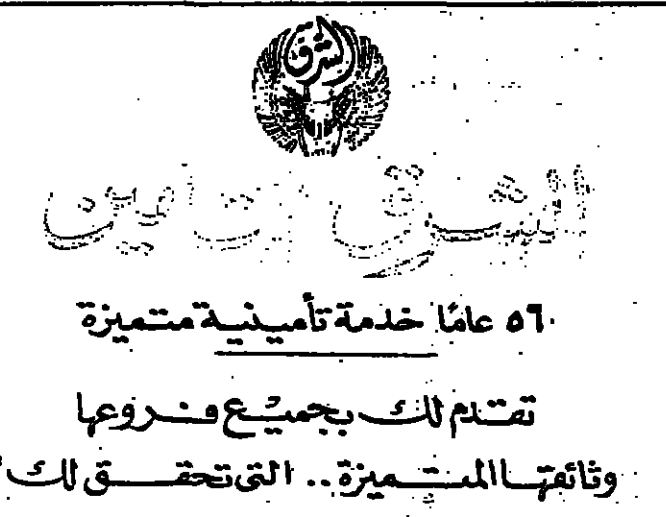 الشرق
الشرق للتأمين
٥٦ عامًا خدمة تأمينية متميزة
تقدم لك بجميع فروعها
وثائقها المتميزة .. التى تحقق لك